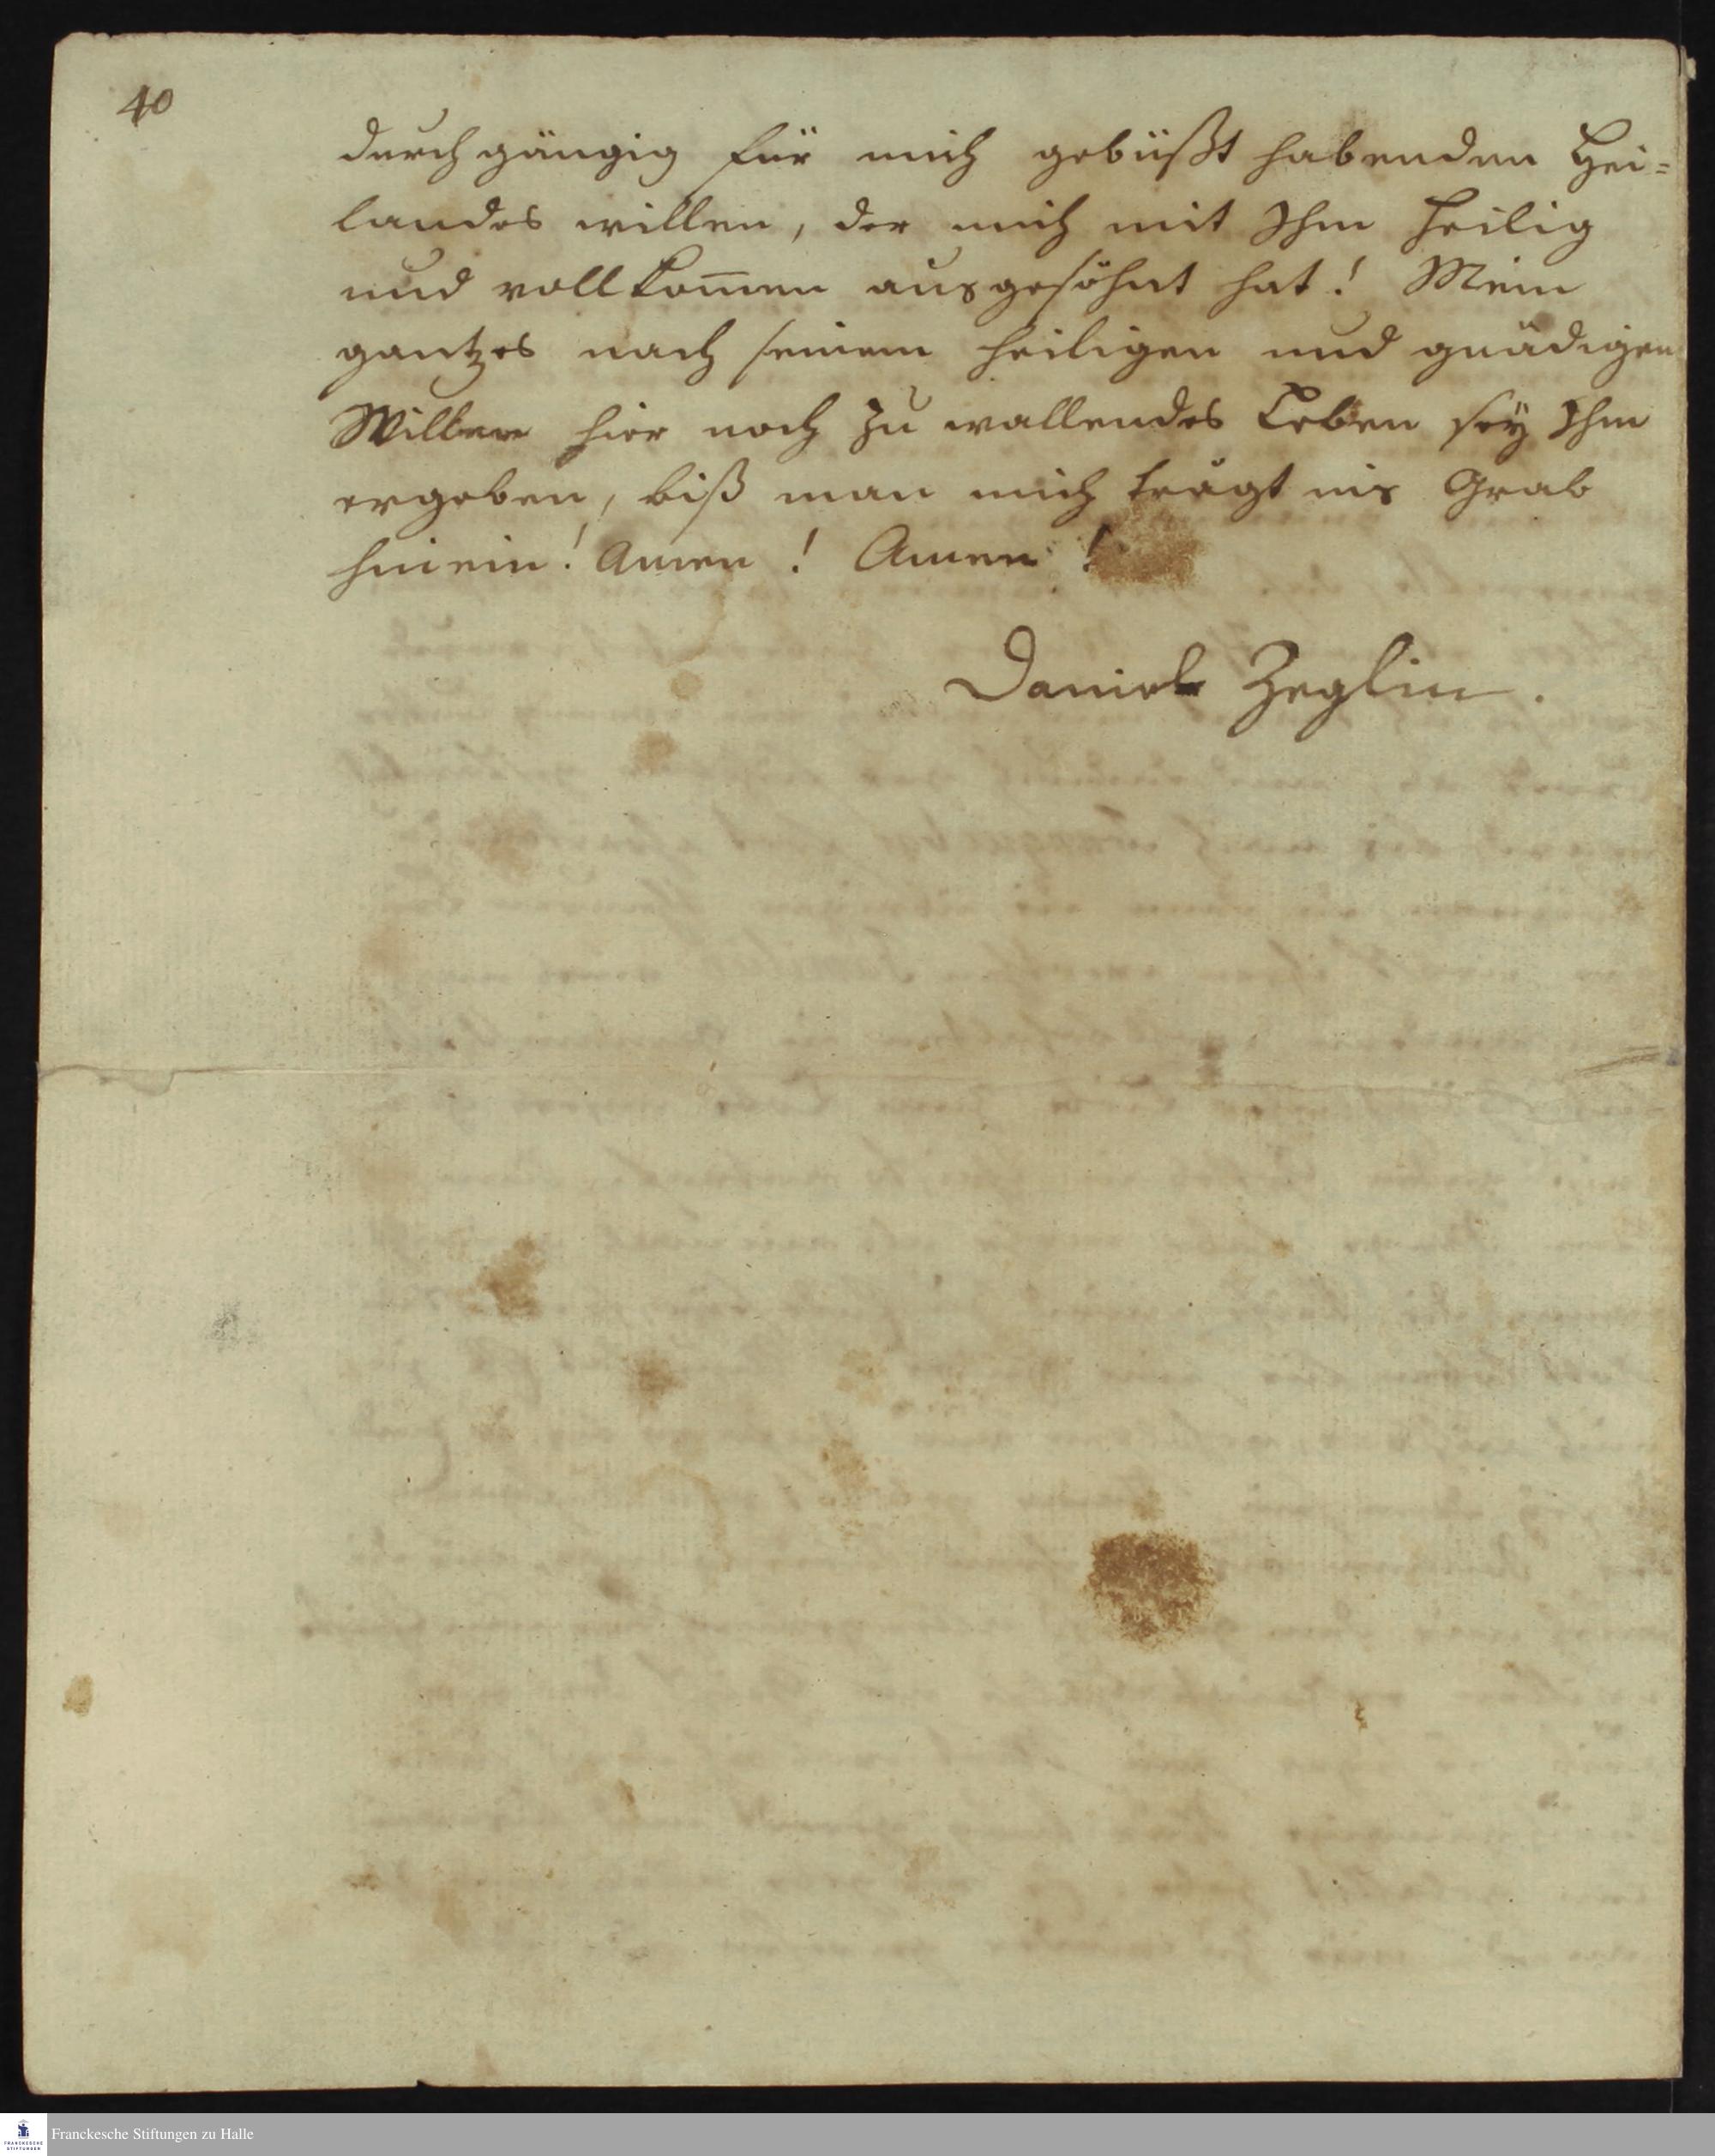 40
durchgängig für mich gebüßt habenden Hei=
landes willen, der mich mit Ihm heilig
und vollkom̅en ausgesöhnt hat! Mein
gantzes nach seinem heiligen und gnädigen
Willen hier noch zu wallendes Leben seÿ Ihm
ergeben, biß man mich trägt ins Grab
hinein! Amen! Amen!
Daniel Zeglin.
FRANCKESCHE
STIFTUNGEN
Franckesche Stiftungen zu Halle